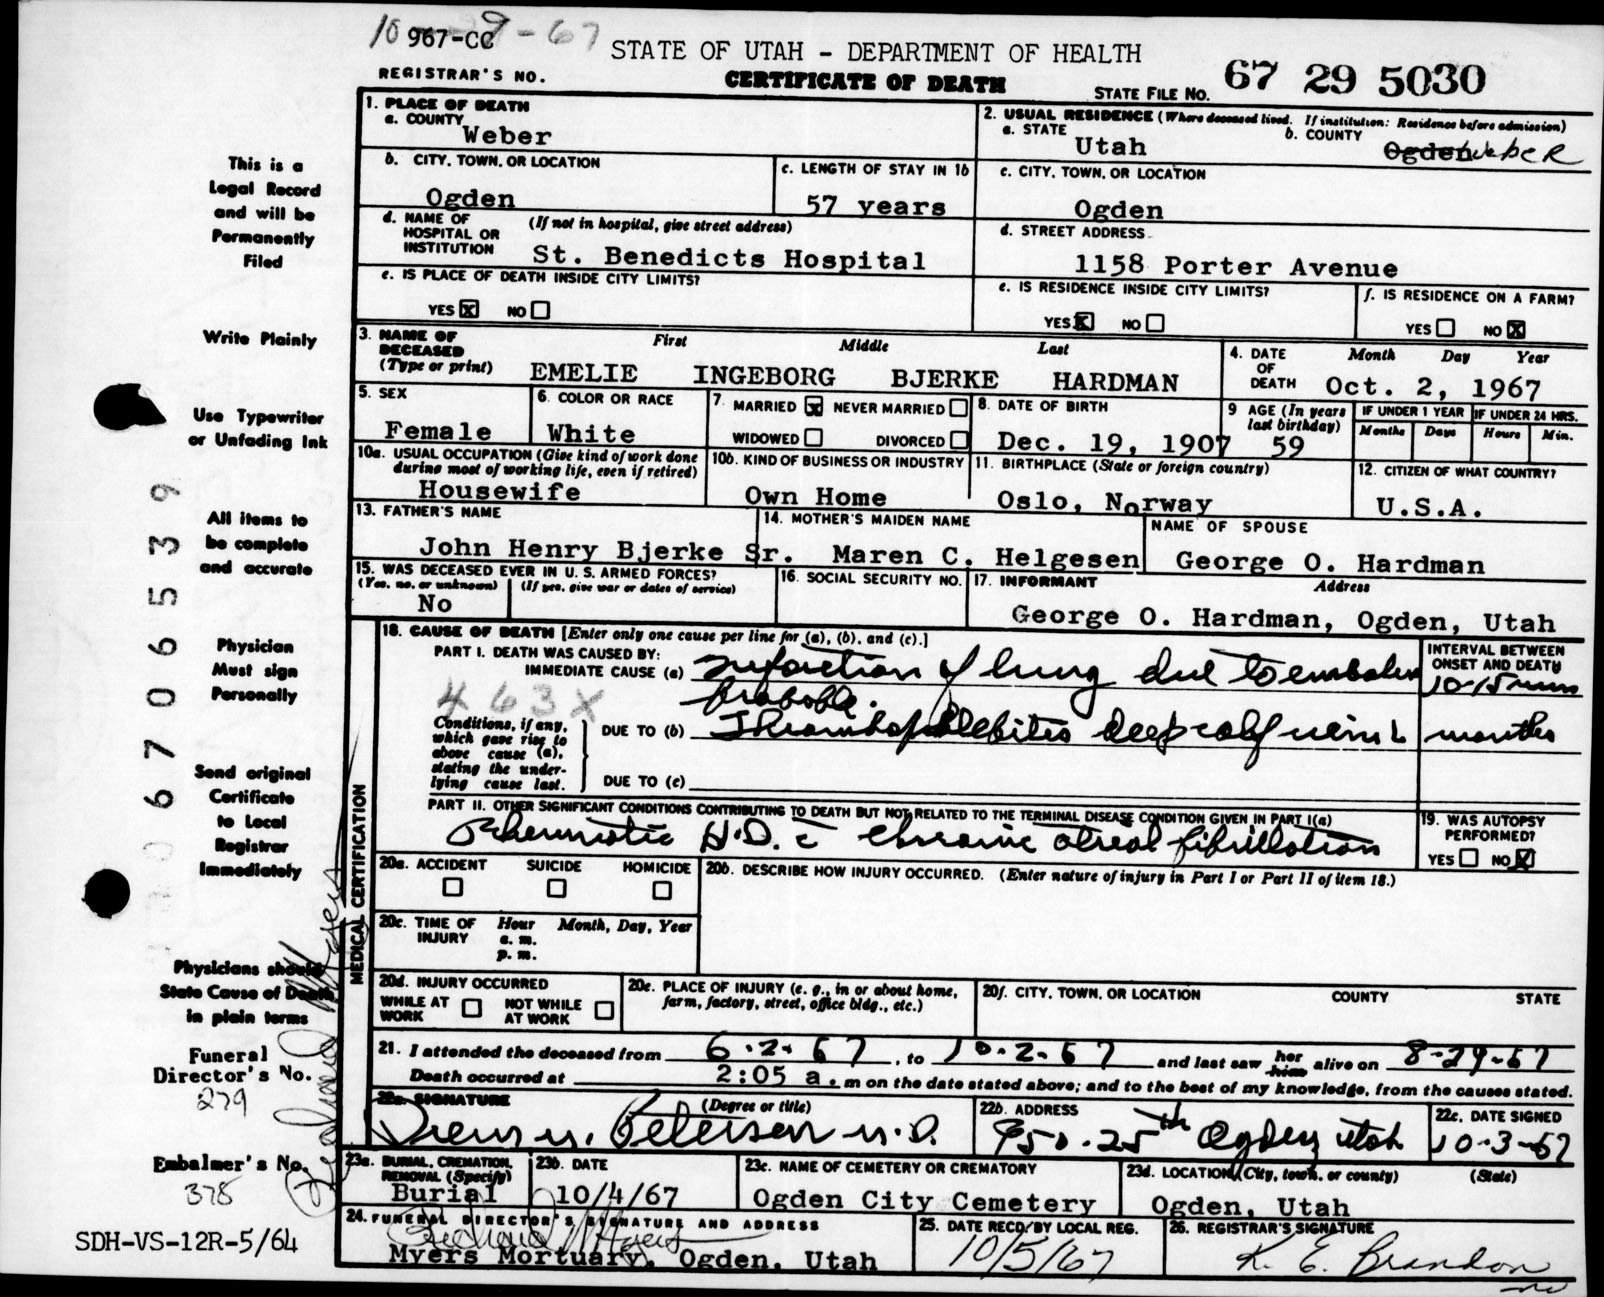 10 - 9 - 67
967-CC
STATE OF UTAH - DEPARTMENT OF HEALTH
REGISTRAR'S NO.
CERTIFICATE OF DEATH
STATE FILE NO. 67 29 5030
1. PLACE OF DEATH
a. COUNTY
Weber
2. USUAL RESIDENCE (Where deceased lived. If institution: Residence before admission)
a. STATE
Utah
b. COUNTY
Ogden WEBER
b. CITY, TOWN, OR LOCATION
Ogden
c. LENGTH OF STAY IN 1b
57 years
c. CITY, TOWN, OR LOCATION
Ogden
d. NAME OF HOSPITAL OR INSTITUTION (If not in hospital, give street address)
St. Benedicts Hospital
d. STREET ADDRESS
1158 Porter Avenue
e. IS PLACE OF DEATH INSIDE CITY LIMITS?
YES X NO
e. IS RESIDENCE INSIDE CITY LIMITS?
YES X NO
f. IS RESIDENCE ON A FARM?
YES NO X
3. NAME OF DECEASED (Type or print)
First Middle Last
EMELIE INGEBORG BJERKE HARDMAN
4. DATE OF DEATH Month Day Year
Oct. 2, 1967
5. SEX
Female
6. COLOR OR RACE
White
7. MARRIED X NEVER MARRIED
WIDOWED DIVORCED
8. DATE OF BIRTH
Dec. 19, 1907
9 AGE (In years last birthday)
59
IF UNDER 1 YEAR
Months Days
IF UNDER 24 HRS.
Hours Min.
10a. USUAL OCCUPATION (Give kind of work done during most of working life, even if retired)
Housewife
10b. KIND OF BUSINESS OR INDUSTRY
Own Home
11. BIRTHPLACE (State or foreign country)
Oslo, Norway
12. CITIZEN OF WHAT COUNTRY?
U.S.A.
13. FATHER'S NAME
John Henry Bjerke Sr.
14. MOTHER'S MAIDEN NAME
Maren C. Helgesen
NAME OF SPOUSE
George O. Hardman
15. WAS DECEASED EVER IN U. S. ARMED FORCES?
(Yes, no, or unknown) (If yes, give war or dates of service)
No
16. SOCIAL SECURITY NO.
17. INFORMANT Address
George O. Hardman, Ogden, Utah
MEDICAL CERTIFICATION
18. CAUSE OF DEATH [Enter only one cause per line for (a), (b), and (c).]
PART I. DEATH WAS CAUSED BY:
IMMEDIATE CAUSE (a) infarction of lung due to embolus
probable.
463X
Conditions, if any, which gave rise to above cause (a), stating the underlying cause last.
DUE TO (b) Thrombophlebites deep calf vein L
DUE TO (c)
INTERVAL BETWEEN ONSET AND DEATH
10-15 min
months
PART II. OTHER SIGNIFICANT CONDITIONS CONTRIBUTING TO DEATH BUT NOT RELATED TO THE TERMINAL DISEASE CONDITION GIVEN IN PART I(a)
Rheumatic H.D. c̄ chronic atreal fibrillation
19. WAS AUTOPSY PERFORMED?
YES NO X
20a. ACCIDENT SUICIDE HOMICIDE
20b. DESCRIBE HOW INJURY OCCURRED. (Enter nature of injury in Part I or Part II of item 18.)
20c. TIME OF INJURY Hour Month, Day, Year
a. m.
p. m.
20d. INJURY OCCURRED
WHILE AT WORK NOT WHILE AT WORK
20e. PLACE OF INJURY (e. g., in or about home, farm, factory, street, office bldg., etc.)
20f. CITY, TOWN, OR LOCATION COUNTY STATE
21. I attended the deceased from 6-2-67, to 10-2-67 and last saw her him alive on 8-29-67
Death occurred at 2:05 a. m on the date stated above; and to the best of my knowledge, from the causes stated.
22a. SIGNATURE (Degree or title)
Drew M. Petersen M.D.
22b. ADDRESS
950-25th Ogden Utah
22c. DATE SIGNED
10-3-67
23a. BURIAL, CREMATION, REMOVAL (Specify)
Burial
23b. DATE
10/4/67
23c. NAME OF CEMETERY OR CREMATORY
Ogden City Cemetery
23d. LOCATION (City, town, or county) (State)
Ogden, Utah
24. FUNERAL DIRECTOR'S SIGNATURE AND ADDRESS
Richard Myers
Myers Mortuary, Ogden, Utah
25. DATE RECD BY LOCAL REG.
10/5/67
26. REGISTRAR'S SIGNATURE
K. E. Brandon
This is a
Legal Record
and will be
Permanently
Filed
Write Plainly
Use Typewriter
or Unfading Ink
All items to
be complete
and accurate
Physician
Must sign
Personally
Send original
Certificate
to Local
Registrar
Immediately
Physicians should
State Cause of Death
in plain terms
Funeral
Director's No.
279
Embalmer's No.
375
Richard Myers
67065539
SDH-VS-12R-5/64